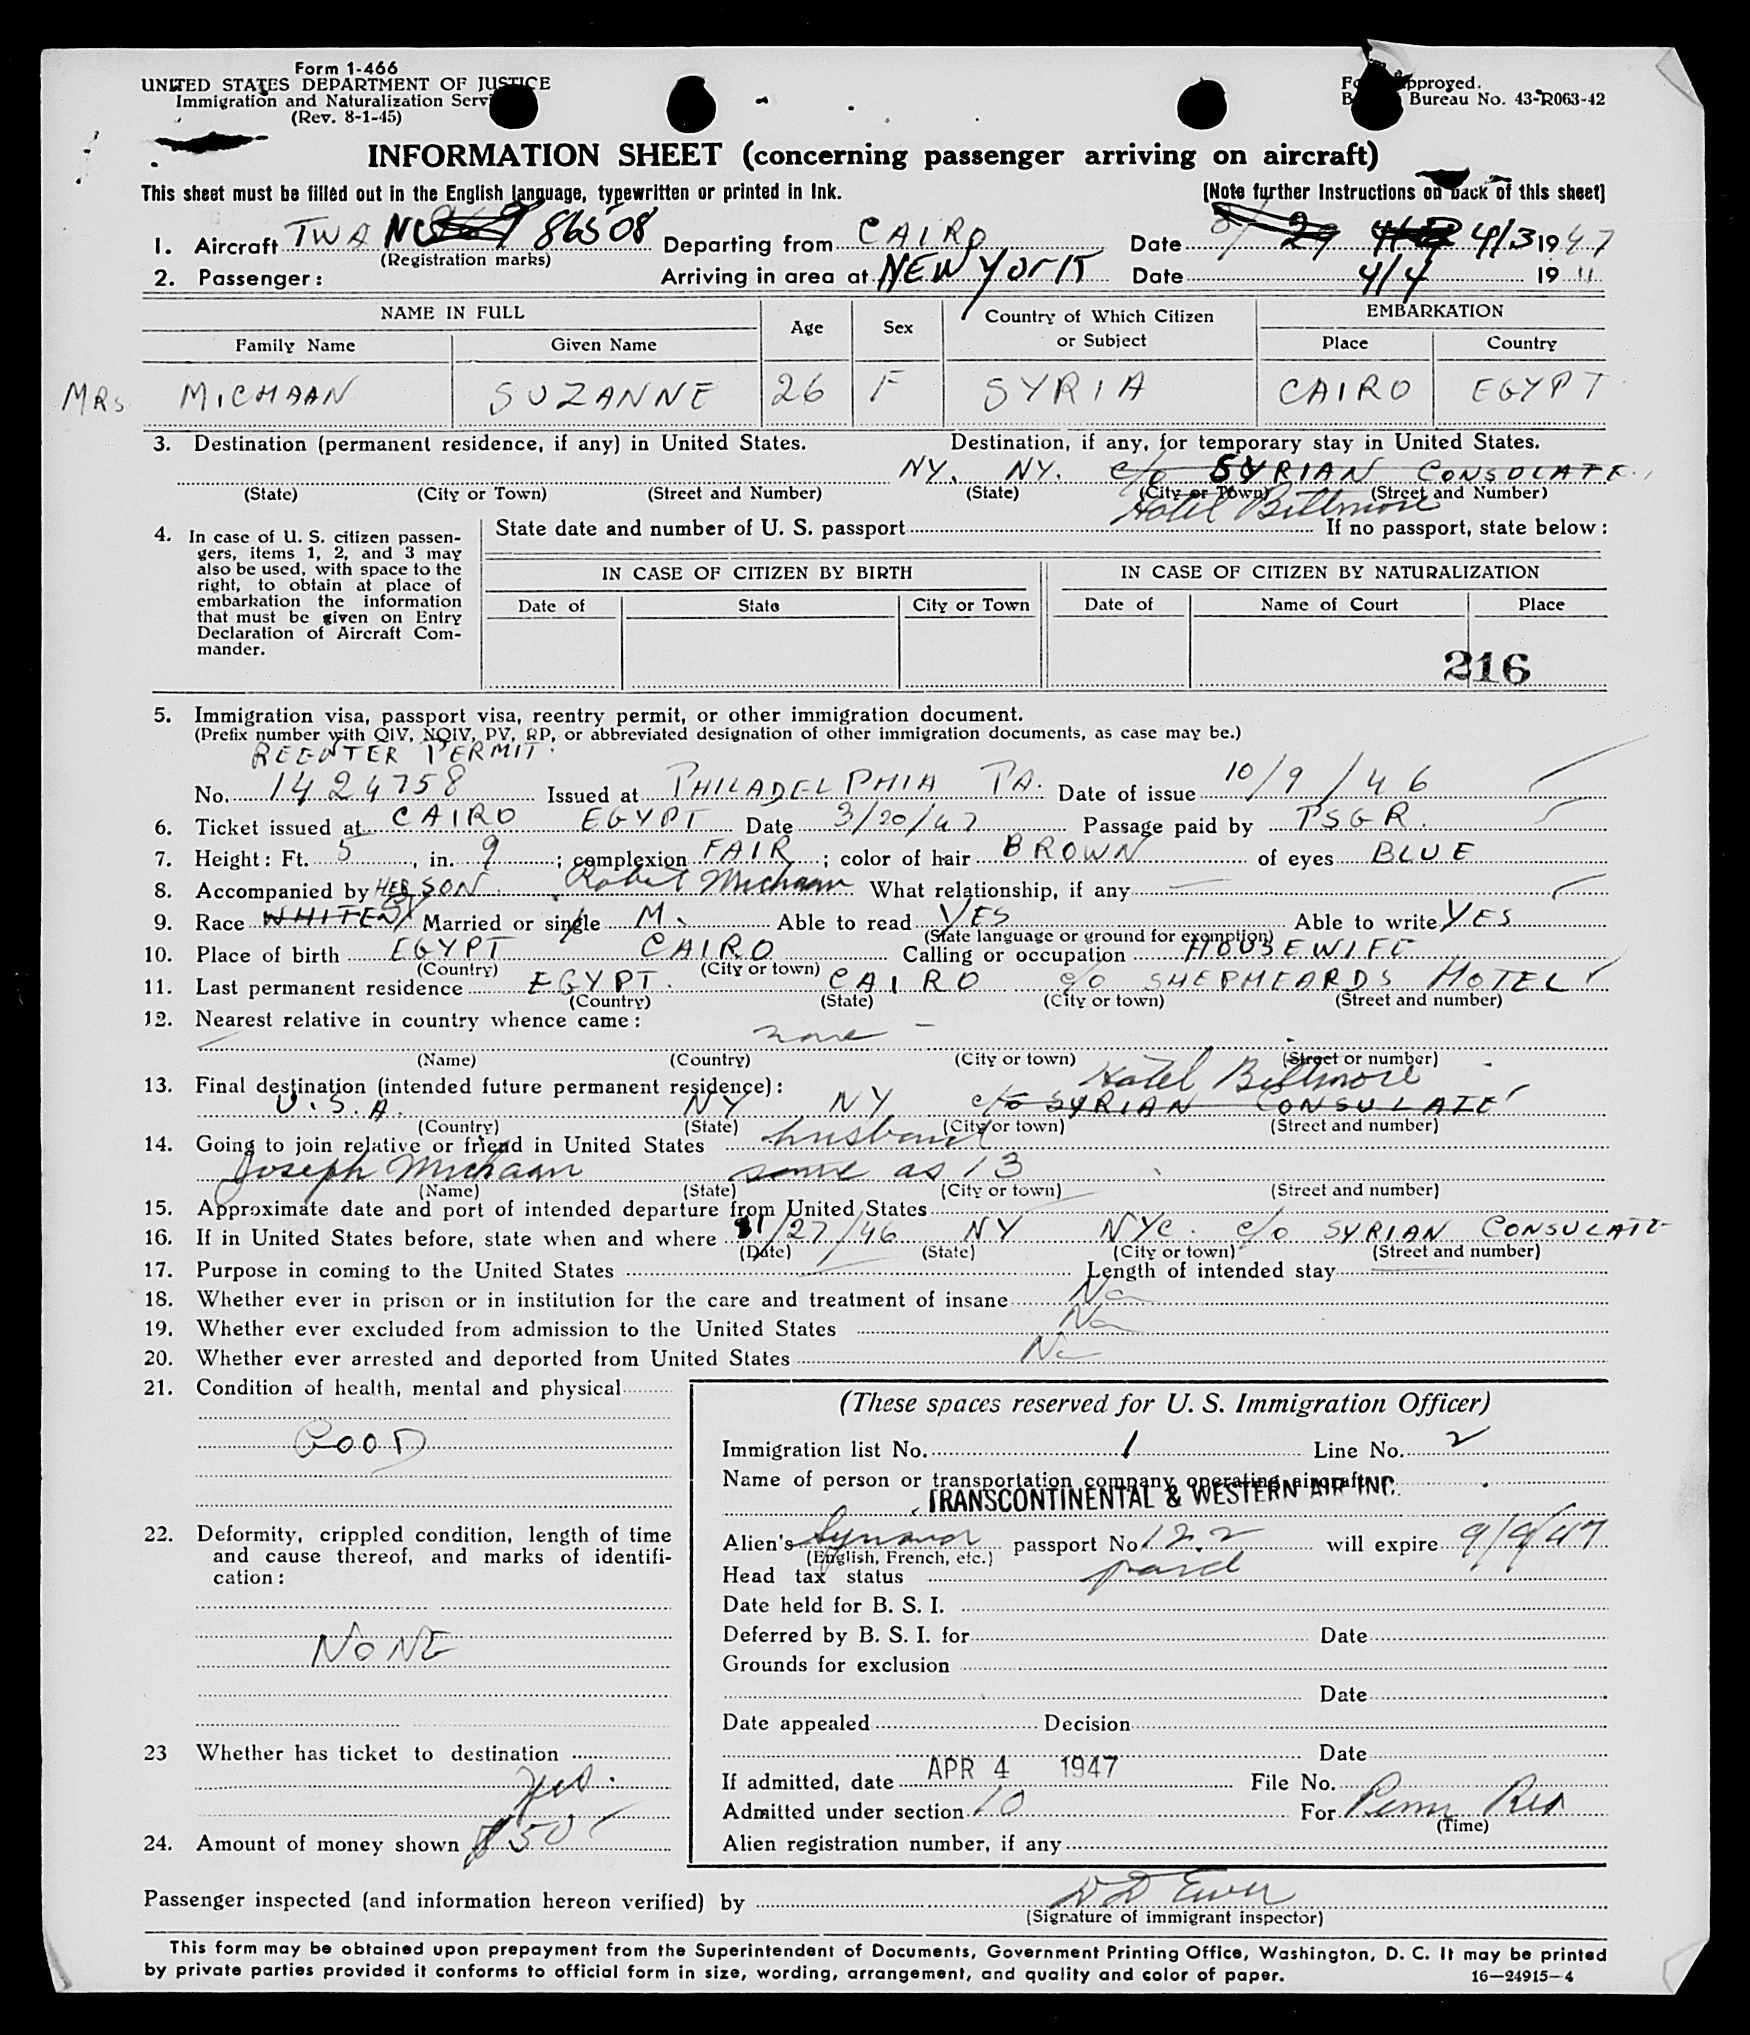 Form 1-466
UNITED STATES DEPARTMENT OF JUSTICE
Immigration and Naturalization Serv
(Rev. 8-1-45)
pproved.
Bureau No. 43-R063-42
INFORMATION SHEET (concerning passenger arriving on aircraft)
This sheet must be filled out in the English language, typewritten or printed in ink.
[Note further Instructions on back of this sheet]
1. Aircraft TWA NC 86508 Departing from CAIRO Date 4/3 1947
(Registration marks)
2. Passenger: Arriving in area at NEW YORK Date 4/4 19 11
NAME IN FULL
Family Name Given Name Age Sex Country of Which Citizen or Subject EMBARKATION Place Country
MRS MICHAAN SUZANNE 26 F SYRIA CAIRO EGYPT
3. Destination (permanent residence, if any) in United States. Destination, if any, for temporary stay in United States.
NY. NY. c/o SYRIAN CONSULATE
(State) (City or Town) (Street and Number) (State) (City or Town) (Street and Number)
Hotel Biltmore
4. In case of U. S. citizen passen-
gers, items 1, 2, and 3 may
also be used, with space to the
right, to obtain at place of
embarkation the information
that must be given on Entry
Declaration of Aircraft Com-
mander.
State date and number of U. S. passport If no passport, state below:
IN CASE OF CITIZEN BY BIRTH IN CASE OF CITIZEN BY NATURALIZATION
Date of State City or Town Date of Name of Court Place
216
5. Immigration visa, passport visa, reentry permit, or other immigration document.
(Prefix number with QIV, NQIV, PV, RP, or abbreviated designation of other immigration documents, as case may be.)
REENTER PERMIT.
No. 1424758 Issued at PHILADELPHIA PA. Date of issue 10/9/46
6. Ticket issued at CAIRO EGYPT Date 3/20/47 Passage paid by PSGR.
7. Height: Ft. 5, in. 9; complexion FAIR; color of hair BROWN of eyes BLUE
8. Accompanied by HER SON Robert Michaan What relationship, if any —
9. Race WHITE Married or single M. Able to read YES Able to write YES
(State language or ground for exemption)
10. Place of birth EGYPT CAIRO Calling or occupation HOUSEWIFE
(Country) (City or town)
11. Last permanent residence EGYPT. CAIRO c/o SHEPHEARDS HOTEL
(Country) (State) (City or town) (Street and number)
12. Nearest relative in country whence came:
none –
(Name) (Country) (City or town) (Street or number)
13. Final destination (intended future permanent residence): Hotel Biltmore
U.S.A. NY NY c/o SYRIAN CONSULATE
(Country) (State) (City or town) (Street and number)
14. Going to join relative or friend in United States husband
Joseph Michaan same as 13
(Name) (State) (City or town) (Street and number)
15. Approximate date and port of intended departure from United States
16. If in United States before, state when and where /27/46 NY NYC. c/o SYRIAN CONSULATE
(Date) (State) (City or town) (Street and number)
17. Purpose in coming to the United States Length of intended stay
18. Whether ever in prison or in institution for the care and treatment of insane No
19. Whether ever excluded from admission to the United States No
20. Whether ever arrested and deported from United States No
21. Condition of health, mental and physical
GOOD
22. Deformity, crippled condition, length of time
and cause thereof, and marks of identifi-
cation:
NONE
23 Whether has ticket to destination
yes.
24. Amount of money shown $50
(These spaces reserved for U. S. Immigration Officer)
Immigration list No. 1 Line No. 2
Name of person or transportation company operating aircraft
TRANSCONTINENTAL & WESTERN AIR INC.
Alien's passport No. 122 will expire 9/9/47
(English, French, etc.)
Head tax status paid
Date held for B. S. I.
Deferred by B. S. I. for Date
Grounds for exclusion
Date
Date appealed Decision
Date
If admitted, date APR 4 1947 File No.
Admitted under section 10 For Perm Res
(Time)
Alien registration number, if any
Passenger inspected (and information hereon verified) by
(Signature of immigrant inspector)
This form may be obtained upon prepayment from the Superintendent of Documents, Government Printing Office, Washington, D. C. It may be printed
by private parties provided it conforms to official form in size, wording, arrangement, and quality and color of paper. 16—24915-4